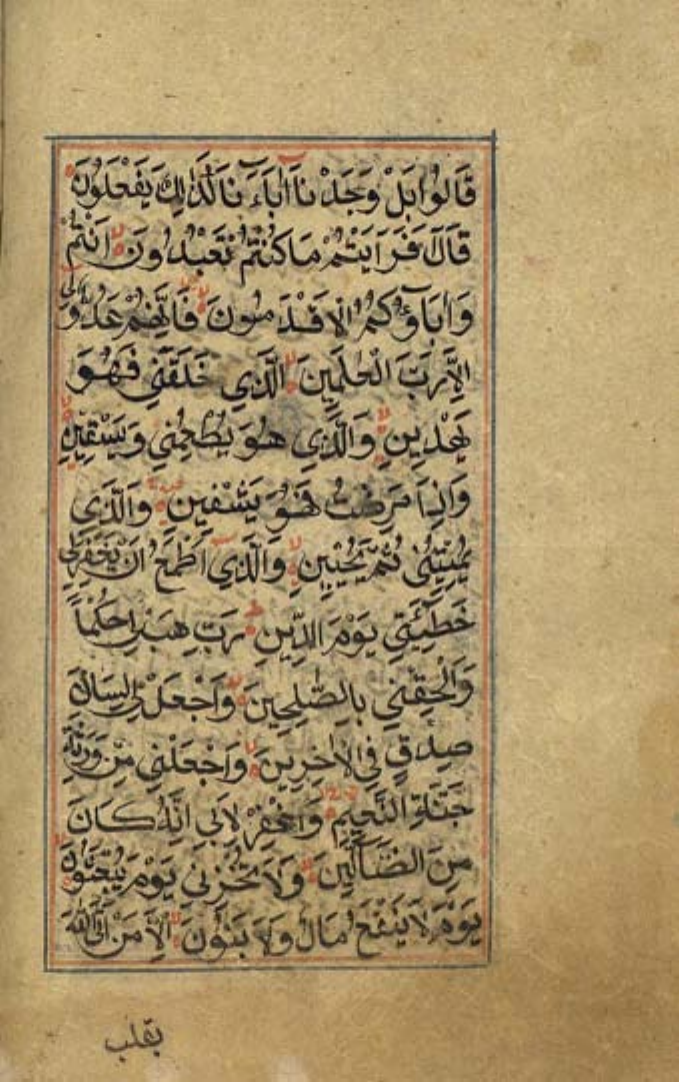 قَالُوا بَلْ وَجَدْنَا آبَاءَنَا كَذَٰلِكَ يَفْعَلُونَ
قَالَ فَرَأَيْتُمْ مَا كُنْتُمْ تَعْبُدُونَ اَنْتُمْ
وَاٰبَاؤُكُمُ الْاَقْدَمُونَ فَاِنَّهُمْ عَدُوٌّ لِي
اِلَّا رَبَّ الْعٰلَمِينَ الَّذِي خَلَقَنِي فَهُوَ
يَهْدِينِ وَالَّذِي هُوَ يُطْعِمُنِي وَيَسْقِينِ
وَاِذَا مَرِضْتُ فَهُوَ يَشْفِينِ وَالَّذِي
يُمِيتُنِي ثُمَّ يُحْيِينِ وَالَّذِي اَطْمَعُ اَنْ يَغْفِرَ لِي
خَطِٓيئَتِي يَوْمَ الدِّينِ رَبِّ هَبْ لِي حُكْمًا
وَاَلْحِقْنِي بِالصّٰلِحِينَ وَاجْعَلْ لِي لِسَانَ
صِدْقٍ فِي الْاٰخِرِينَ وَاجْعَلْنِي مِنْ وَرَثَةِ
جَنَّةِ النَّعِيمِ وَاغْفِرْ لِاَبِي اِنَّهُ كَانَ
مِنَ الضَّآلِّينَ وَلَا تُخْزِنِي يَوْمَ يُبْعَثُونَ
يَوْمَ لَا يَنْفَعُ مَالٌ وَلَا بَنُونَ اِلَّا مَنْ اَتَى اللّٰهَ
بقلب